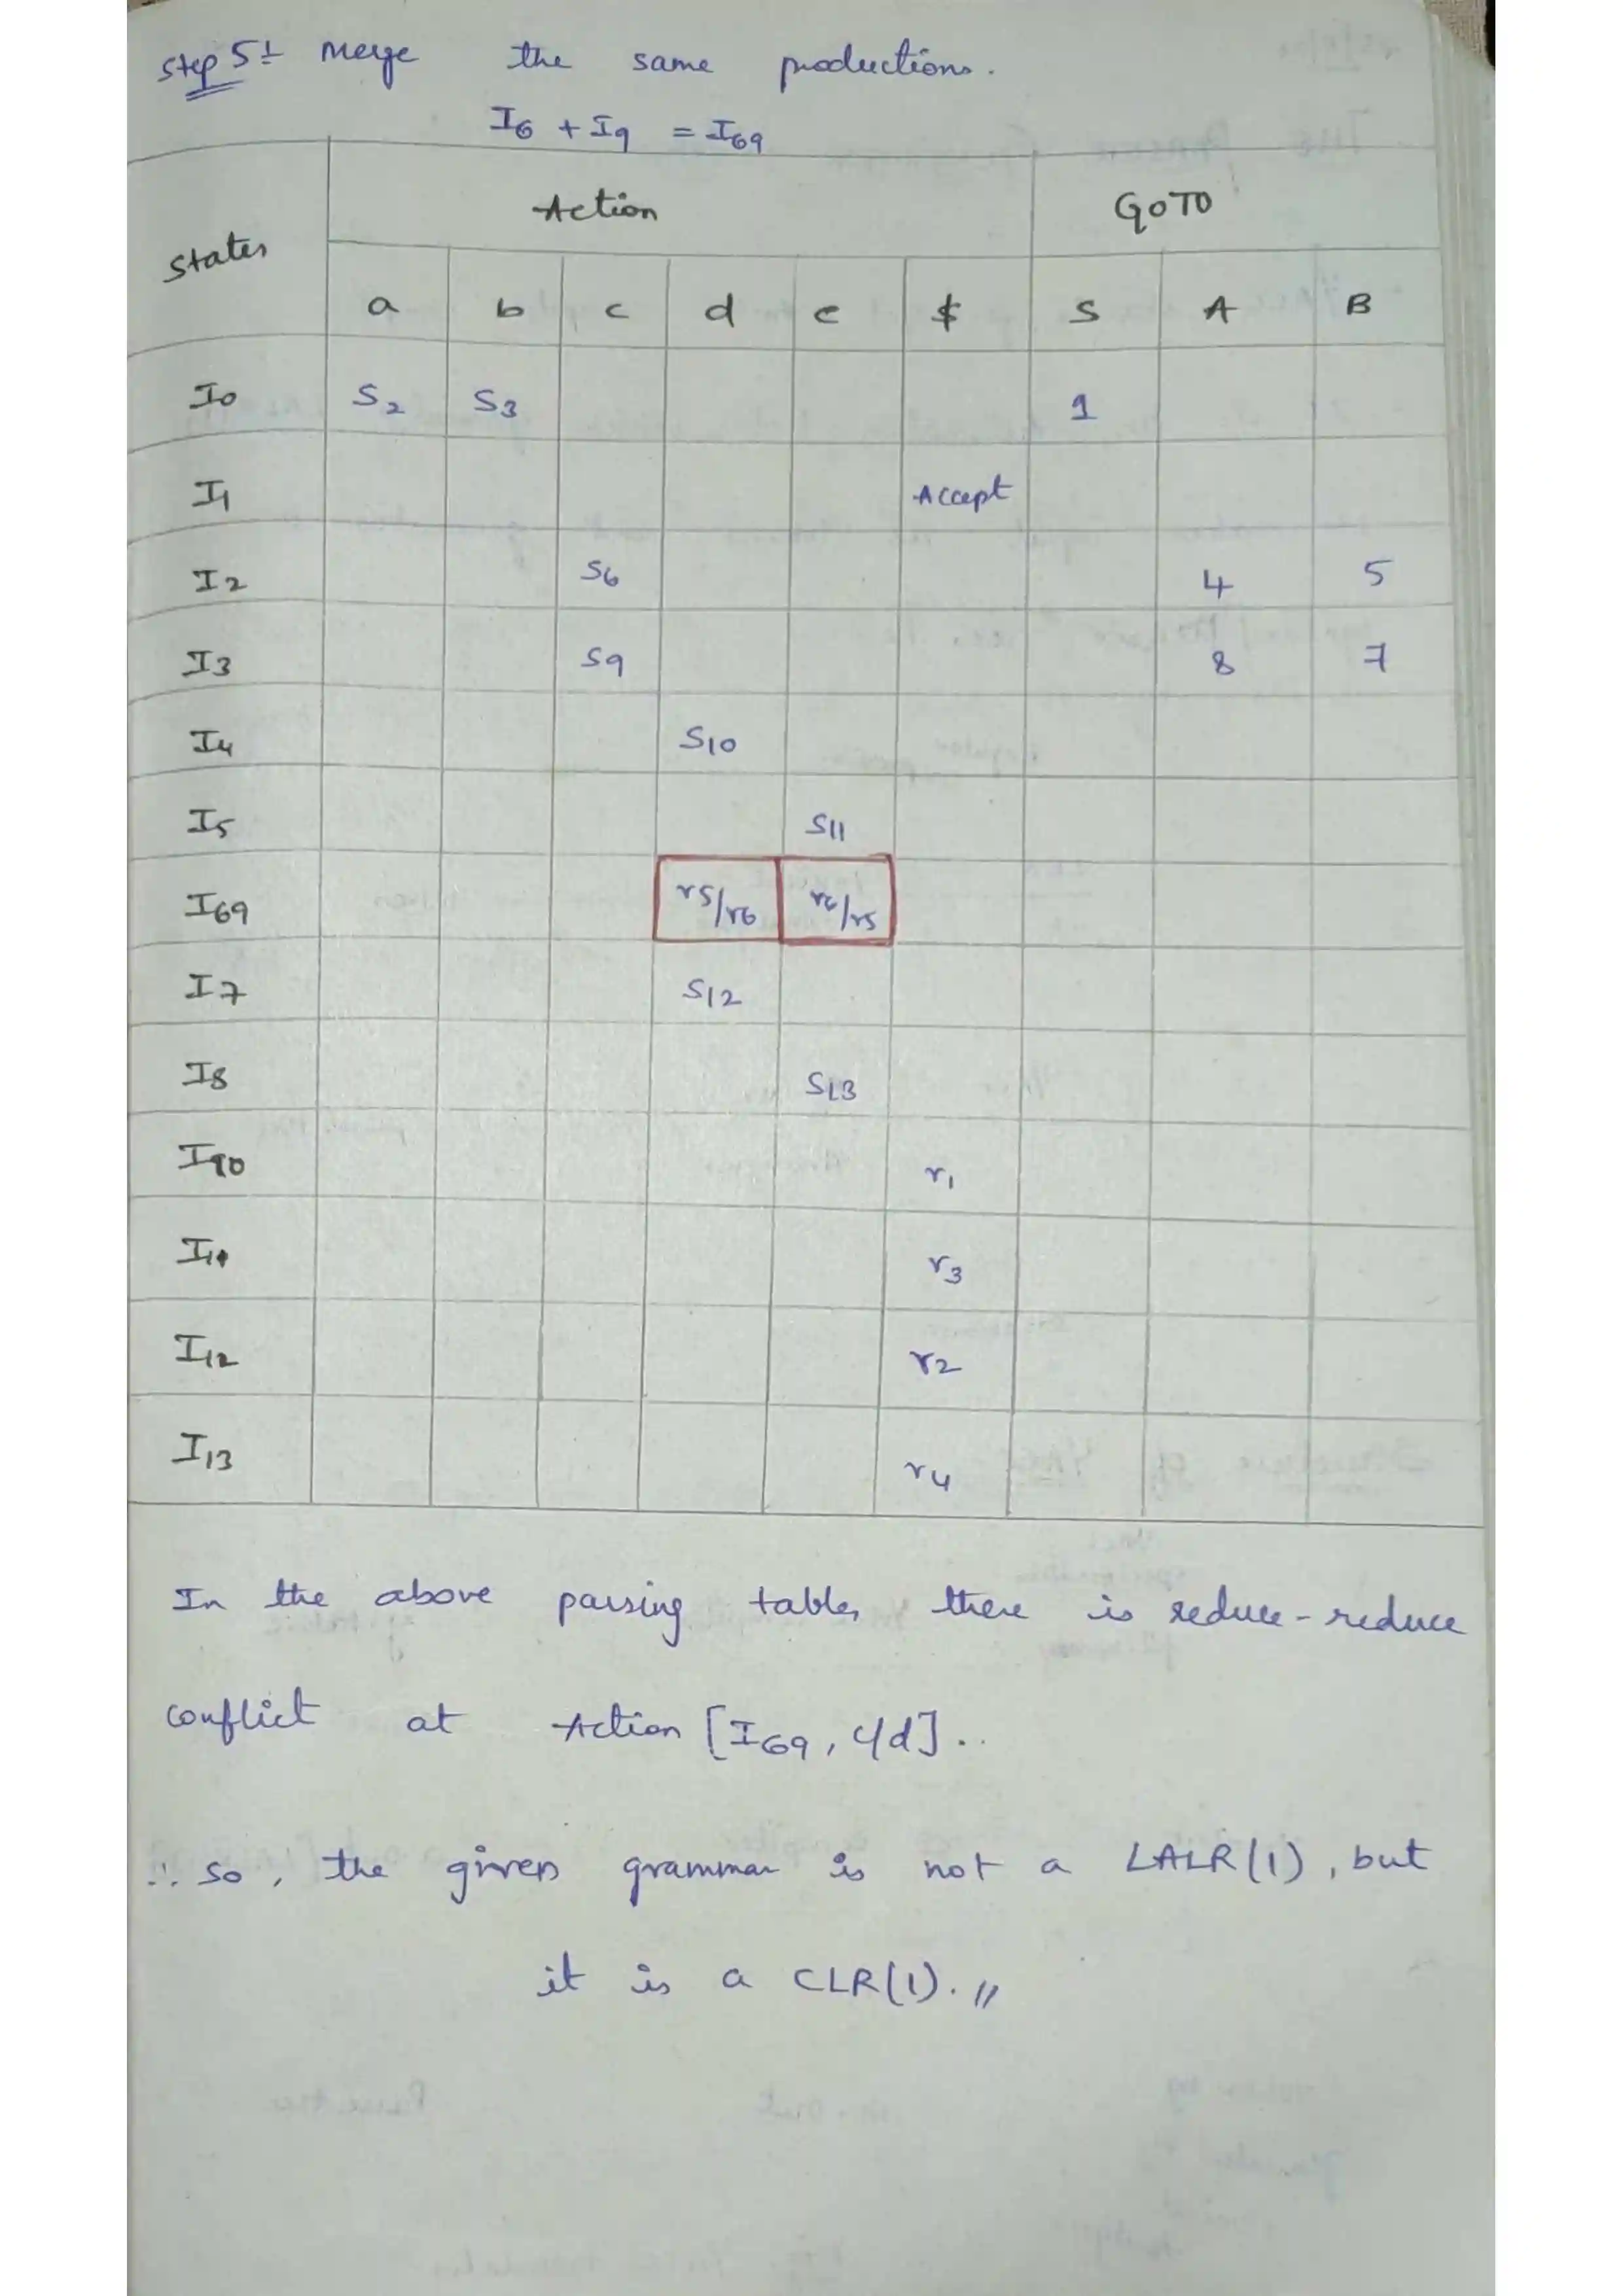 Step 5: Merge the same productions.
I6 + I9 = I69
States Action GOTO
a b c d e $ S A B
I0 S2 S3 1
I1 Accept
I2 S6 4 5
I3 S9 8 7
I4 S10
I5 S11
I69 r5/r6 r6/r5
I7 S12
I8 S13
I10 r1
I11 r3
I12 r2
I13 r4
In the above parsing table, there is reduce-reduce
conflict at Action [I69, c/d]..
∴ So, the given grammar is not a LALR(1), but
it is a CLR(1).//